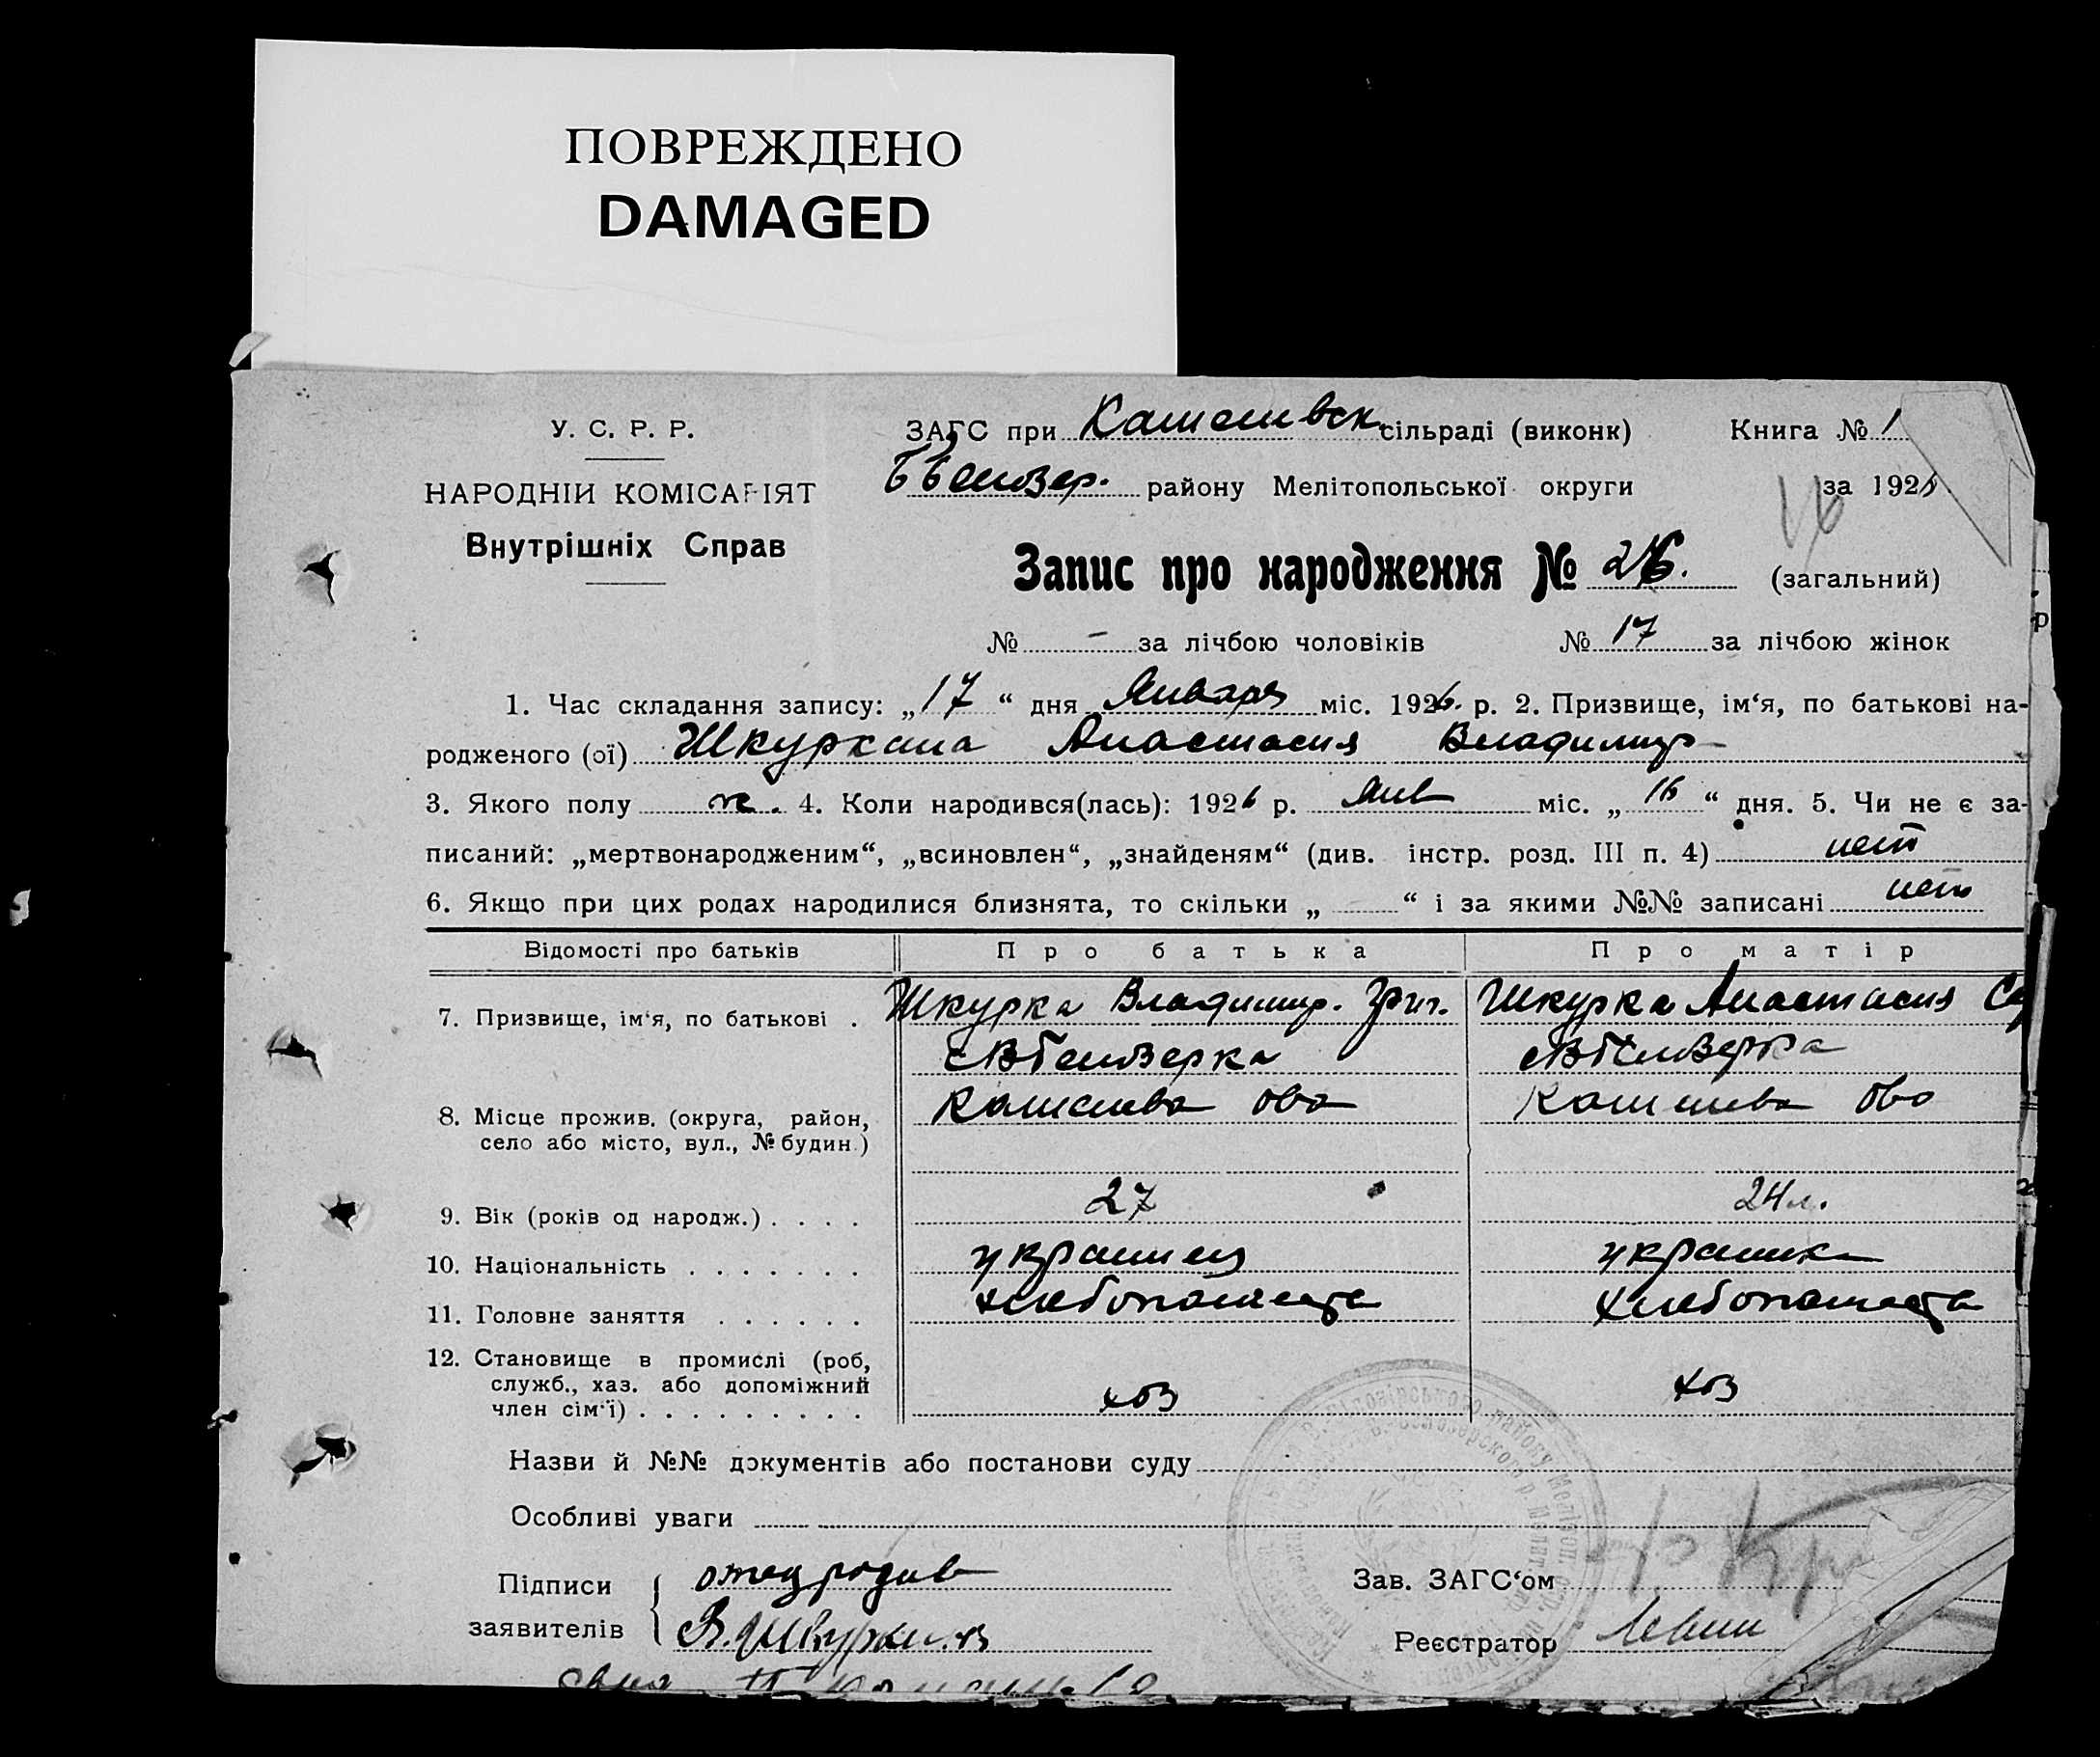 ПОВРЕЖДЕНО
DAMAGED
У. С. Р. Р.
НАРОДНІЙ КОМІСАРІЯТ
Внутрішніх Справ
ЗАГС при сільраді (виконк) Книга № 1
району Мелітопольської округи за 192
Запис про народження № 26. (загальний)
№ – за лічбою чоловіків № 17 за лічбою жінок
1. Час складання запису: „17“ дня Января міс. 1926. р. 2. Призвище, ім‘я, по батькові на-
родженого (ої) Анастасия Владимир
3. Якого полу ж. 4. Коли народився(лась): 1926 р. Янв міс. „16“ дня. 5. Чи не є за-
писаний: „мертвонародженим“, „всиновлен“, „знайденям“ (див. інстр. розд. III п. 4) нет
6. Якщо при цих родах народилися близнята, то скільки „ “ і за якими №№ записані нет
Відомості про батьків Про батька Про матір
7. Призвище, ім‘я, по батькові . Шкурка Владимир. Григ. Шкурка Анастасия
8. Місце прожив. (округа, район,
село або місто, вул., № будин.)
9. Вік (років од народж.) . . . . 27 24 л.
10. Національність . . . . . . . украинец украинка
11. Головне заняття . . . . . . хлебопашеств хлебопашеств
12. Становище в промислі (роб,
служб., хаз. або допоміжний
член сім‘ї) . . . . . . . . . хоз хоз
Назви й №№ документів або постанови суду
Особливі уваги
Підписи отец
заявителів
Зав. ЗАГС‘ом
Реєстратор